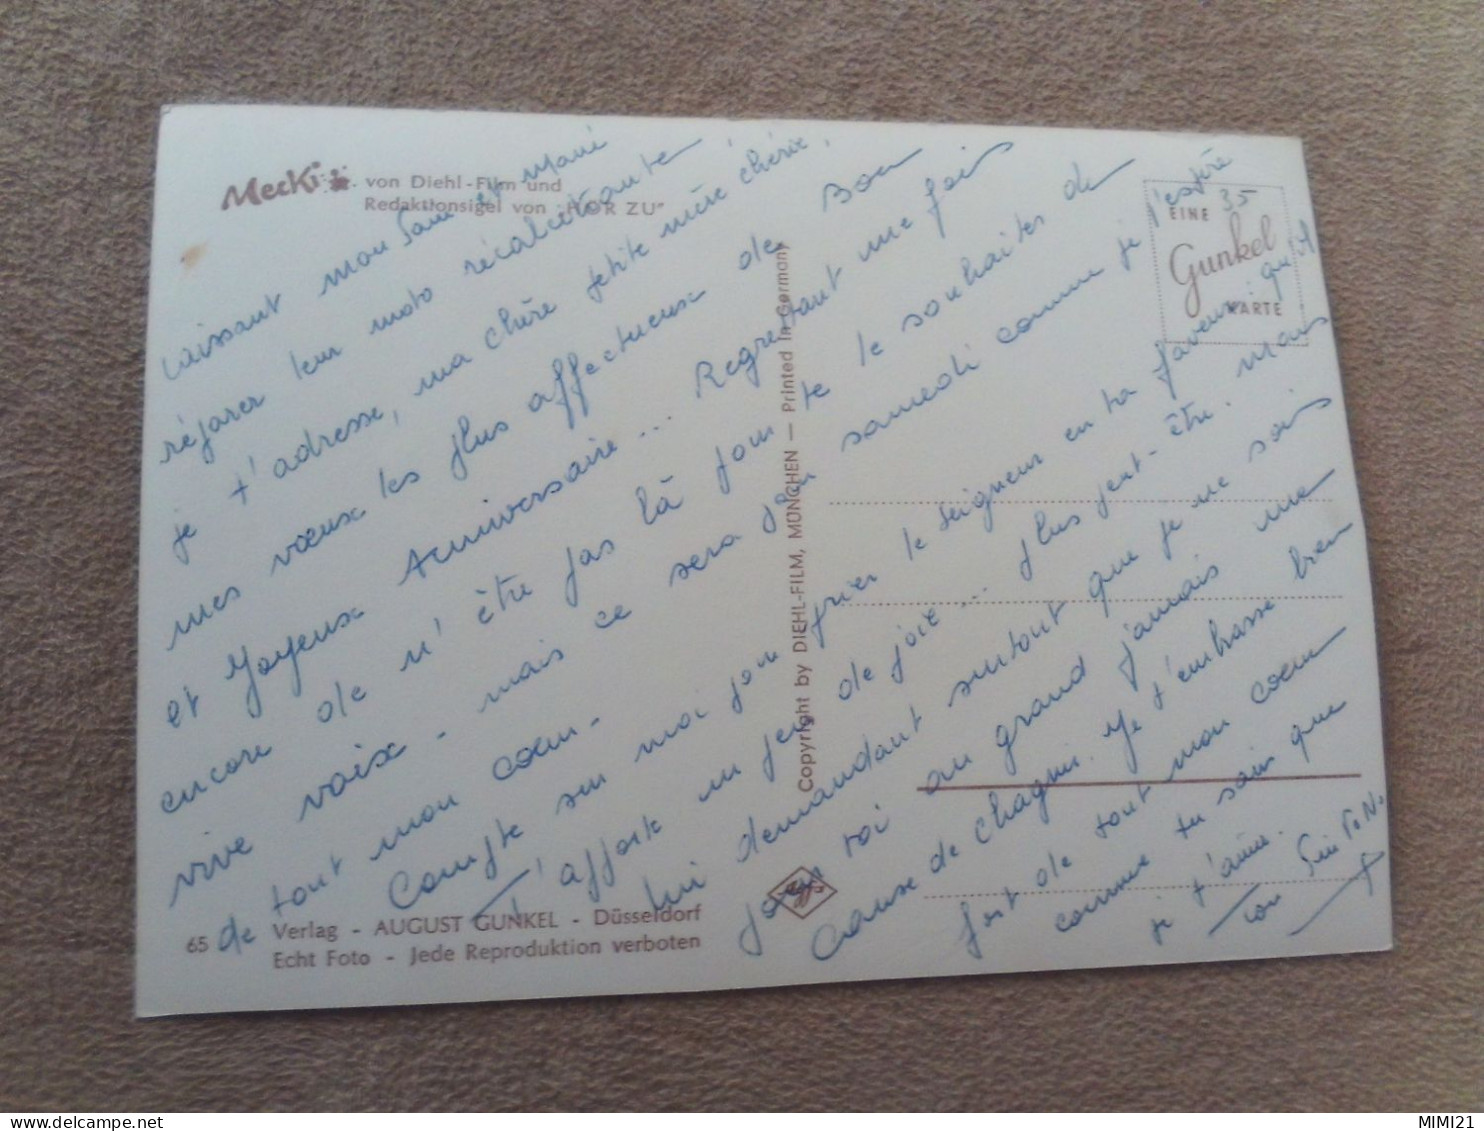 Mecki
von Diehl-Film und
Redaktionsigel von "HÖR ZU"
EINE 35
Gunkel
KARTE
Laissant mon Sami et Mami
réparer leur moto récalcitrante
je t'adresse, ma chère petite mère chérie,
mes vœux les plus affectueux de Bon
et Joyeux Anniversaire... Regrettant une fois
encore de n'être pas là pour te le souhaiter de
vive voix - mais ce sera pour samedi comme je l'espère
de tout mon cœur -
Compte sur moi pour prier le Seigneur en ta faveur. qu'Il
t'apporte un peu de joie... plus peut-être. mais
lui demandant surtout que je ne sois
pour toi au grand jamais une
cause de chagrin. Je t'embrasse bien
fort de tout mon cœur
comme tu sais que
je t'aime.
ton
Copyright by DIEHL-FILM, MÜNCHEN — Printed in Germany
Agfa
65
Verlag - AUGUST GUNKEL - Düsseldorf
Echt Foto - Jede Reproduktion verboten
MIMI21